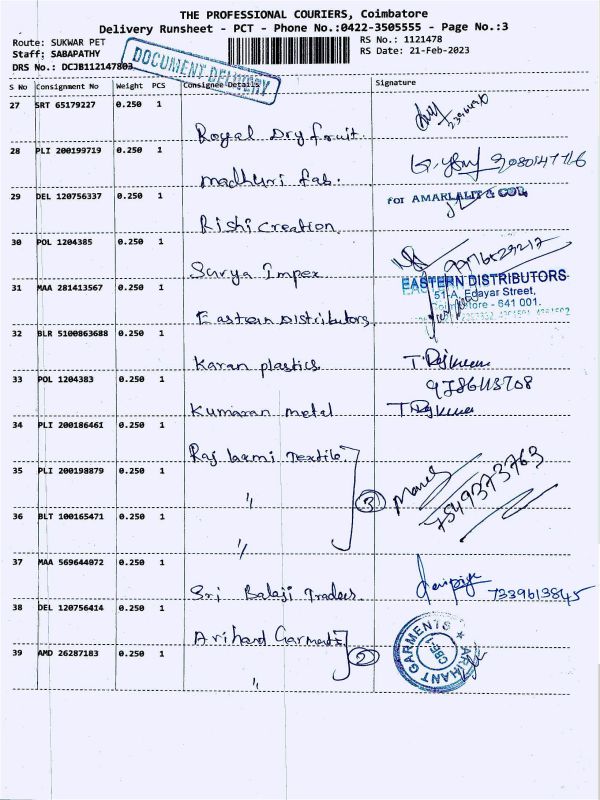 THE PROFESSIONAL COURIERS, Coimbatore
Delivery Runsheet - PCT - Phone No.:0422-3505555 - Page No.:3
Route: SUKWAR PET
RS No.: 1121478
Staff: SABAPATHY
RS Date: 21-Feb-2023
DRS No.: DCJB112147803
DOCUMENT DELIVERY
S No Consignment No Weight PCS Consignee Details Signature
27 SRT 65179227 0.250 1
Royal Dry fruit.
28 PLI 200199719 0.250 1
madhuri fab.
29 DEL 120756337 0.250 1
for AMARLALIT & CO.
Rishi Creation.
30 POL 1204385 0.250 1
Surya Impex
31 MAA 281413567 0.250 1
EASTERN DISTRIBUTORS
51-A, Edayar Street,
Coimbatore - 641 001.
Eastern Distributors
32 BLR 5100863688 0.250 1
Karan plastics
T. Rajkumar
33 POL 1204383 0.250 1
Kumaran metal
T. Rajkumar
34 PLI 200186461 0.250 1
Raj laxmi Textile
35 PLI 200198879 0.250 1
"
3
7549373763
36 BLT 100165471 0.250 1
"
37 MAA 569644072 0.250 1
Sri Balaji Traders
7339613845
38 DEL 120756414 0.250 1
Arihand Garments
2
ARIHANT GARMENTS
CBE-1
39 AMD 26287183 0.250 1
"